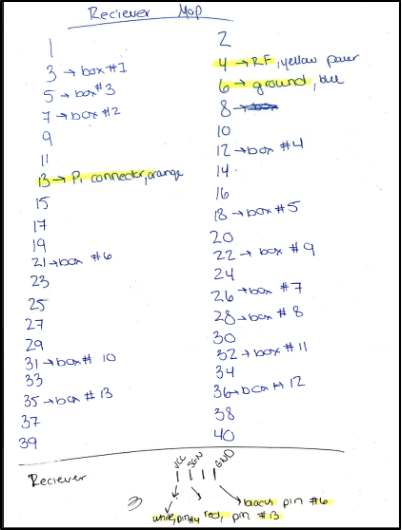 Reciever Map
1 2
3 → box #1 4 → RF, yellow power
5 → box #3 6 → ground, blue
7 → box #2 8 →
9 10
11 12 → box #4
13 → Pi connector, orange 14
15 16
17 18 → box #5
19 20
21 → box #6 22 → box #9
23 24
25 26 → box #7
27 28 → box #8
29 30
31 → box # 10 32 → box #11
33 34
35 → box # 13 36 → box # 12
37 38
39 40
Reciever VCC SGN GND
white, pin #4 red, pin #13 black pin #6